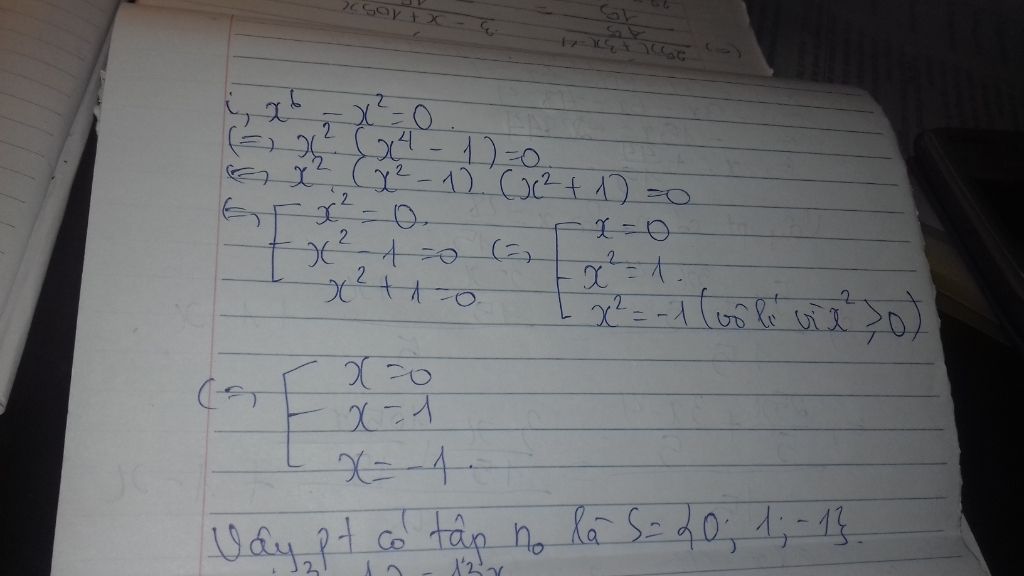 i, x⁶ - x² = 0.
(=) x² (x⁴ - 1) = 0.
(=) x². (x² - 1). (x² + 1) = 0
(=) [ x² = 0. (=) [ x = 0
x² - 1 = 0 x² = 1.
x² + 1 = 0 x² = -1 (vô lí vì x² ≥ 0)
(=) [ x = 0
x = 1
x = -1.
Vậy pt có tập n₀ là S = {0; 1; -1}.